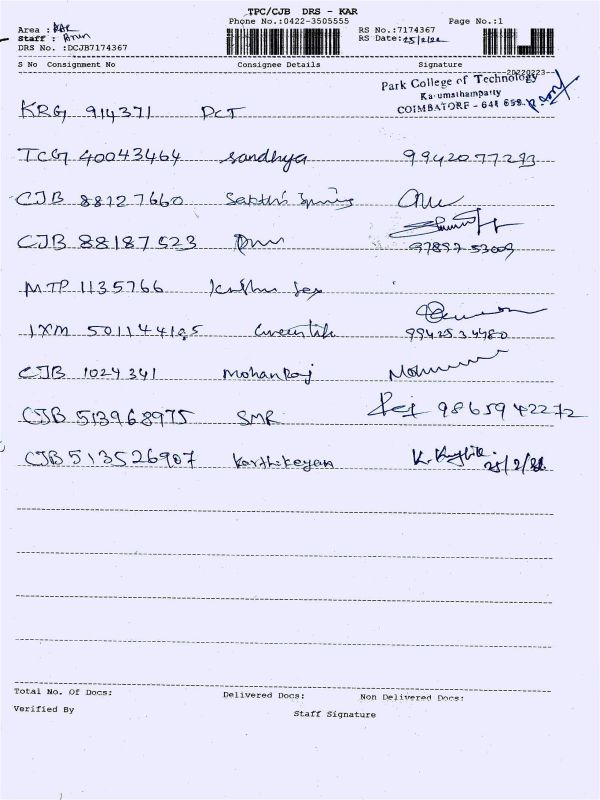 TPC/CJB DRS - KAR
Phone No.:0422-3505555 Page No.:1
Area : KAR RS No.:7174367
Staff : Arun RS Date:25/2/22
DRS No. :DCJB7174367
S No Consignment No Consignee Details Signature
20220223
Park College of Technology
Karumathampatty
COIMBATORE - 641 659.
KRG 914371 PCT
TCG 40043464 Sandhya 9942077293
CJB 88127660 Sakthi Spring
CJB 88187523 97897 53009
MTP 1135766
IXM 501144195 Greentik 9942534980
CJB 1024341 Mohanraj
CJB 513968975 SMR 9865942272
CJB 513526907 Karthikeyan 25/2/22
Total No. Of Docs: Delivered Docs: Non Delivered Docs:
Verified By Staff Signature